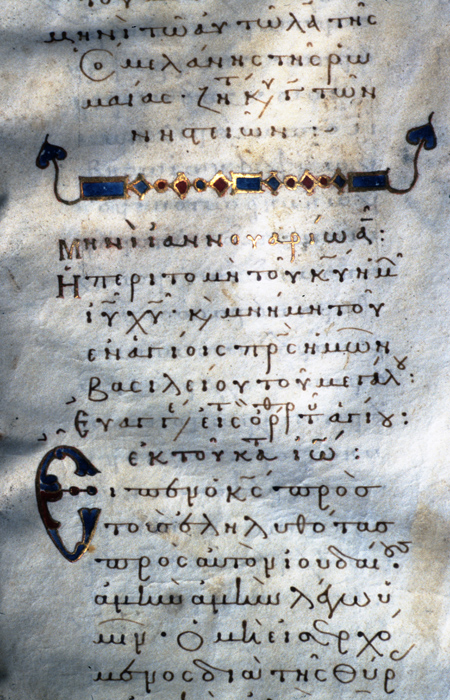 μηνὶ τῶ αὐτῶ λα τῆς
ὁ μελάνης τῆς ρω
μαίας· ζη κ/ γ τῶν
νηστειῶν :
Μηνὶ ἰαννουαρίω α :
Ἡ περιτομὴ τοῦ κυ ἡμ
ιυ χυ· κ/ μνήμη τοῦ
ἐν ἁγίοις πρς ἡμῶν
Βασιλείου τοῦ μεγάλ :
Εὐαγγ/ εἰς ὀρ τ ἁγίου :
ἐκ τοῦ κατ ιω :
Εἶπεν ὁ κς πρὸς
τοὺς ἐληλυθότας
πρὸς αὐτὸν ἰουδαί
ἀμὴν ἀμὴν λέγω ὑ
μῖν· Ὁ μὴ εἰσερχό
μενος διὰ τῆς θύρ